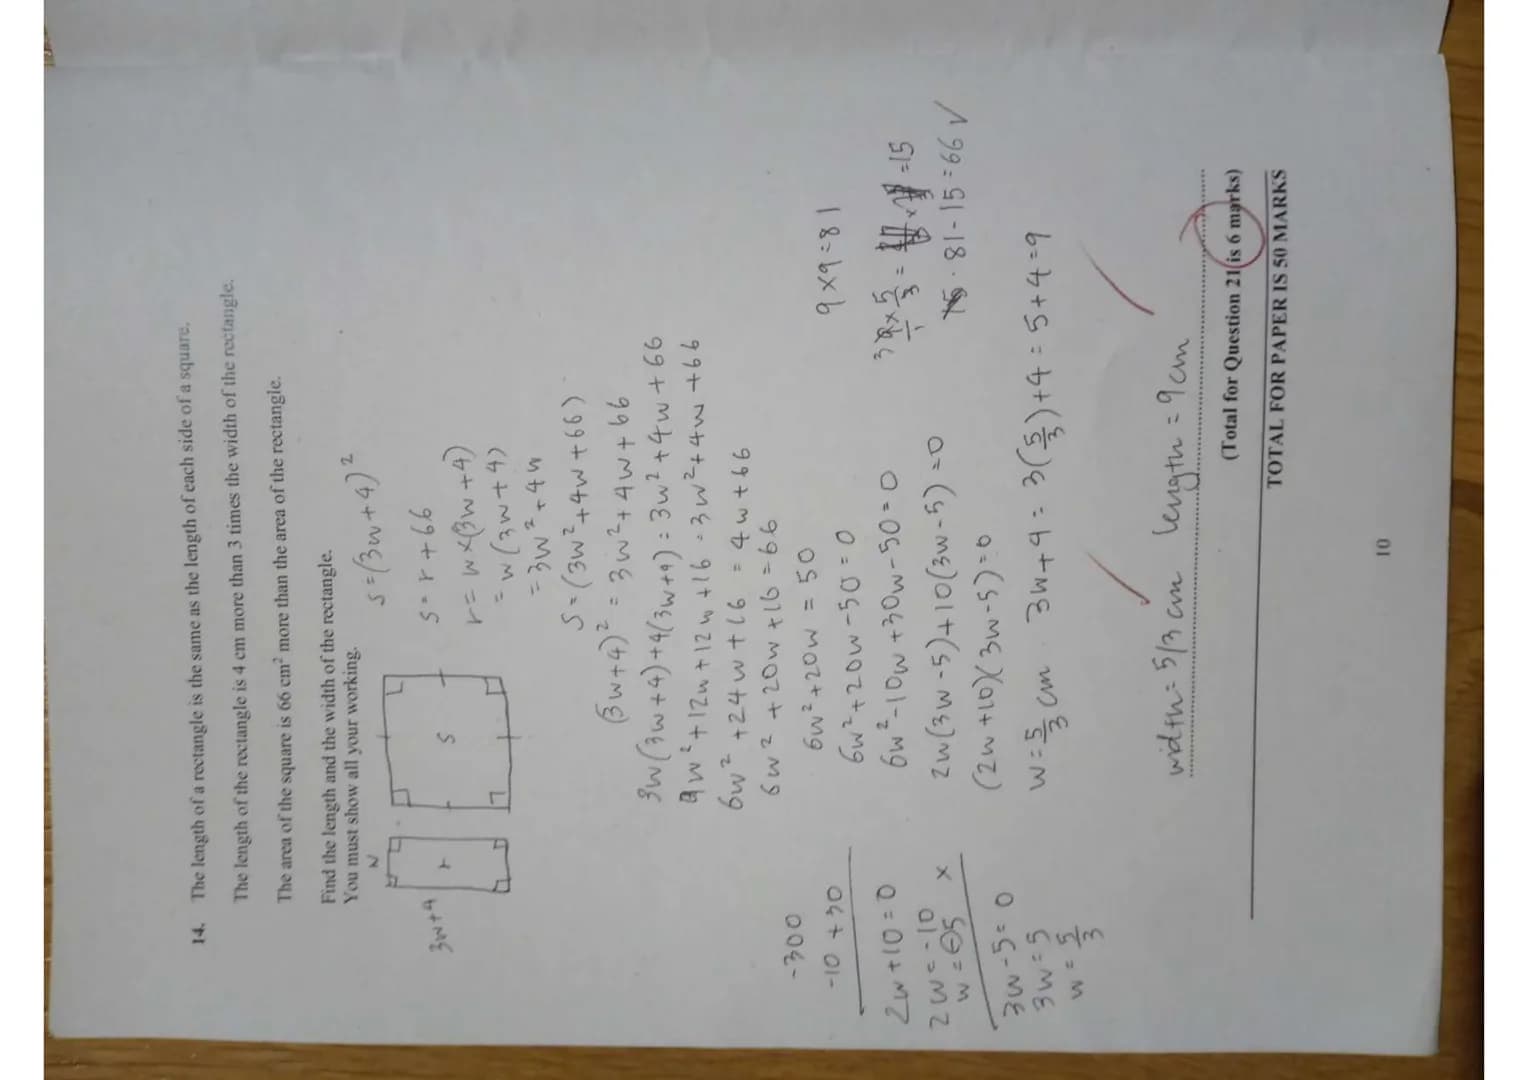 14. The length of a rectangle is the same as the length of each side of a square.
The length of the rectangle is 4 cm more than 3 times the width of the rectangle.
The area of the square is 66 cm² more than the area of the rectangle.
Find the length and the width of the rectangle.
You must show all your working.
w
3w+4
r
s
s=(3w+4)²
s=r+66
r=w×(3w+4)
=w(3w+4)
=3w²+4w
s=(3w²+4w+66)
(3w+4)²=3w²+4w+66
3w(3w+4)+4(3w+4)=3w²+4w+66
9w²+12w+12w+16=3w²+4w+66
6w²+24w+16=4w+66
6w²+20w+16=66
6w²+20w=50
6w²+20w-50=0
6w²-10w+30w-50=0
2w(3w-5)+10(3w-5)=0
(2w+10)(3w-5)=0
w=5/3 cm. 3w+4=3(5/3)+4=5+4=9
-300
-10 +30
2w+10=0
2w=-10
w=-5 ×
3w-5=0
3w=5
w=5/3
9×9=81
=15
81-15=66 ✓
width=5/3 cm length=9cm
(Total for Question 21 is 6 marks)
TOTAL FOR PAPER IS 50 MARKS
10